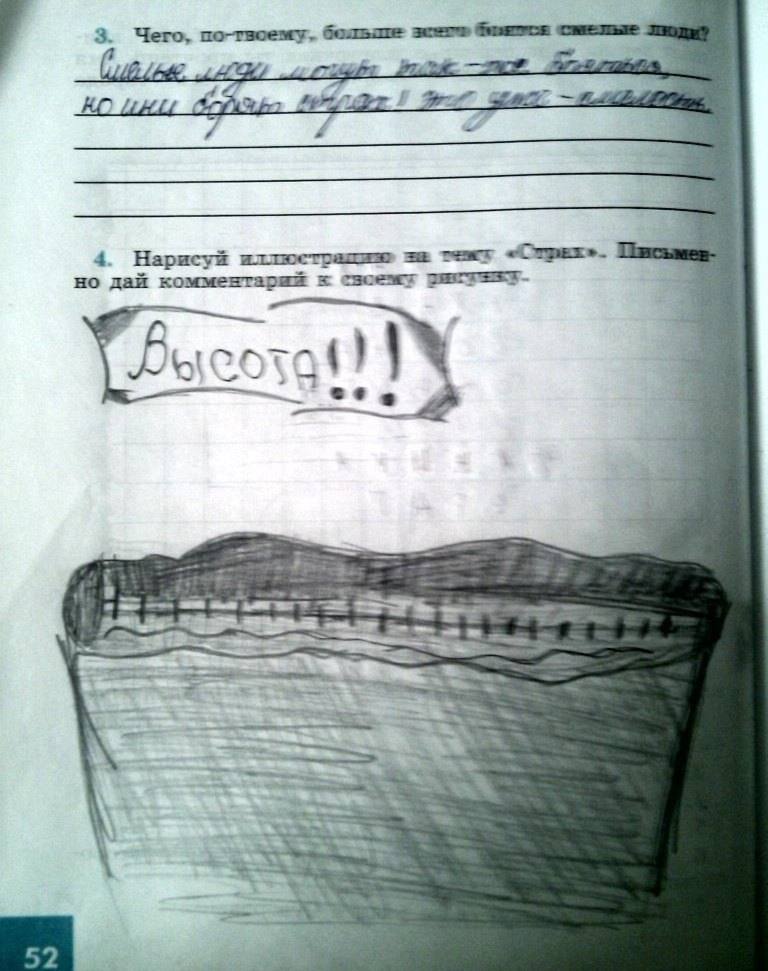 3. Чего, по-твоему, больше всего боятся смелые люди?
Смелые люди могут так-же бояться,
но они борят страх и это уже - смелость.
4. Нарисуй иллюстрацию на тему «Страх». Письмен-
но дай комментарий к своему рисунку.
Высота!!!
52